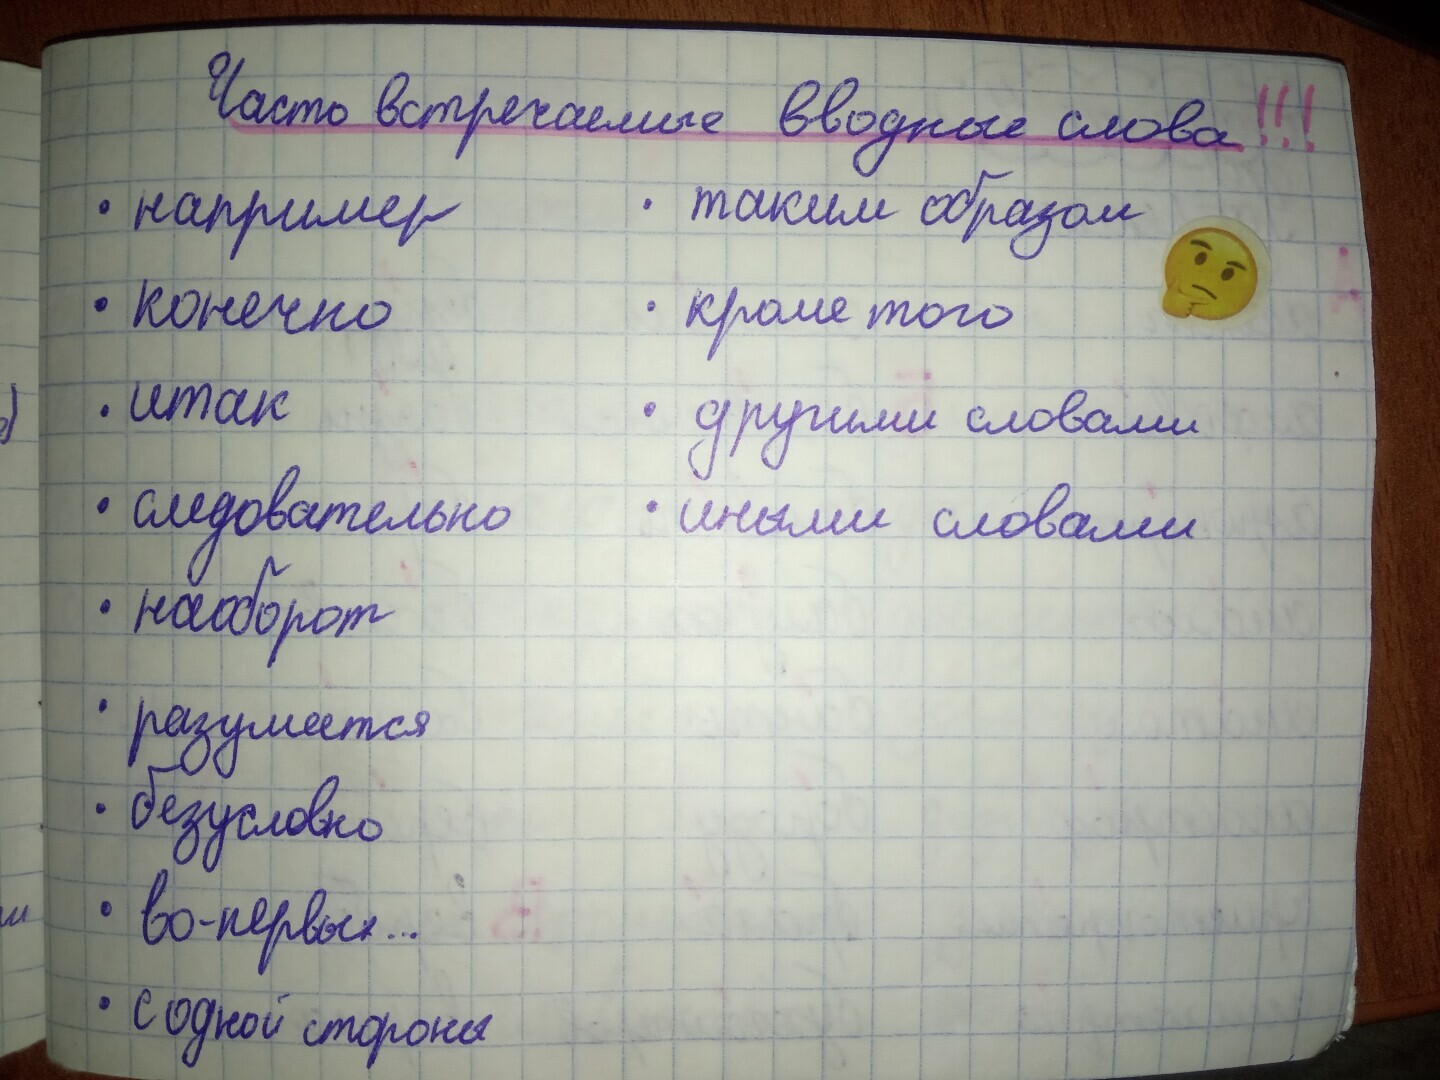 Часто встречаемые вводные слова!!!
• например
• конечно
• итак
• следовательно
• наоборот
• разумеется
• безусловно
• во-первых...
• с одной стороны
• таким образом
• кроме того
• другими словами
• иными словами